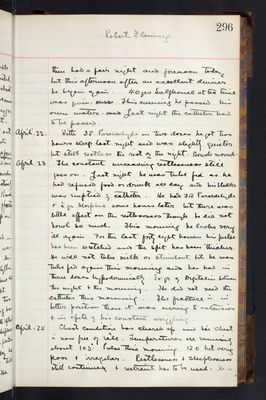 296
Robert Fleming
then had a fair night and forenoon today
but this afternoon after an excellent dinner
he began again. 40 grs Sulphonal at tea time
was given. This evening he passed his
own water and last night the catheter had
to be passed.
April. 22. With 3ii Paraldehyde in two doses he got two
hours sleep last night and was slightly quieter
but still restless the rest of the night. Bowels moved.
April. 23 The constant unceasing restlessness still
goes on. Last night he was tube fed as he
had refused food or drink all day and his bladder
was emptied by catheter. He had 3ii Paraldehyde
some hours later but there was
little effect on the restlessness though he did not
howl so much. This morning he looks very
ill again. For the last few nights his pulse
has been watched and the spit has been thicker.
He will not take milk or stimulant but he was
tube fed again this morning and has had in
three doses hypodermically of Digitalin between
the night & the morning. He did not need the
catheter this morning. The fracture is in
better position these days owing to extension
& in spite of his constant wriggling.
April. 25 Chest condition has cleared up and his chest
is now free of rale. Temperatures are running
about 103. Pulse this morning 120 but very
poor & irregular. Restlessness & sleeplessness
still continuing & restraint has to be used. He is